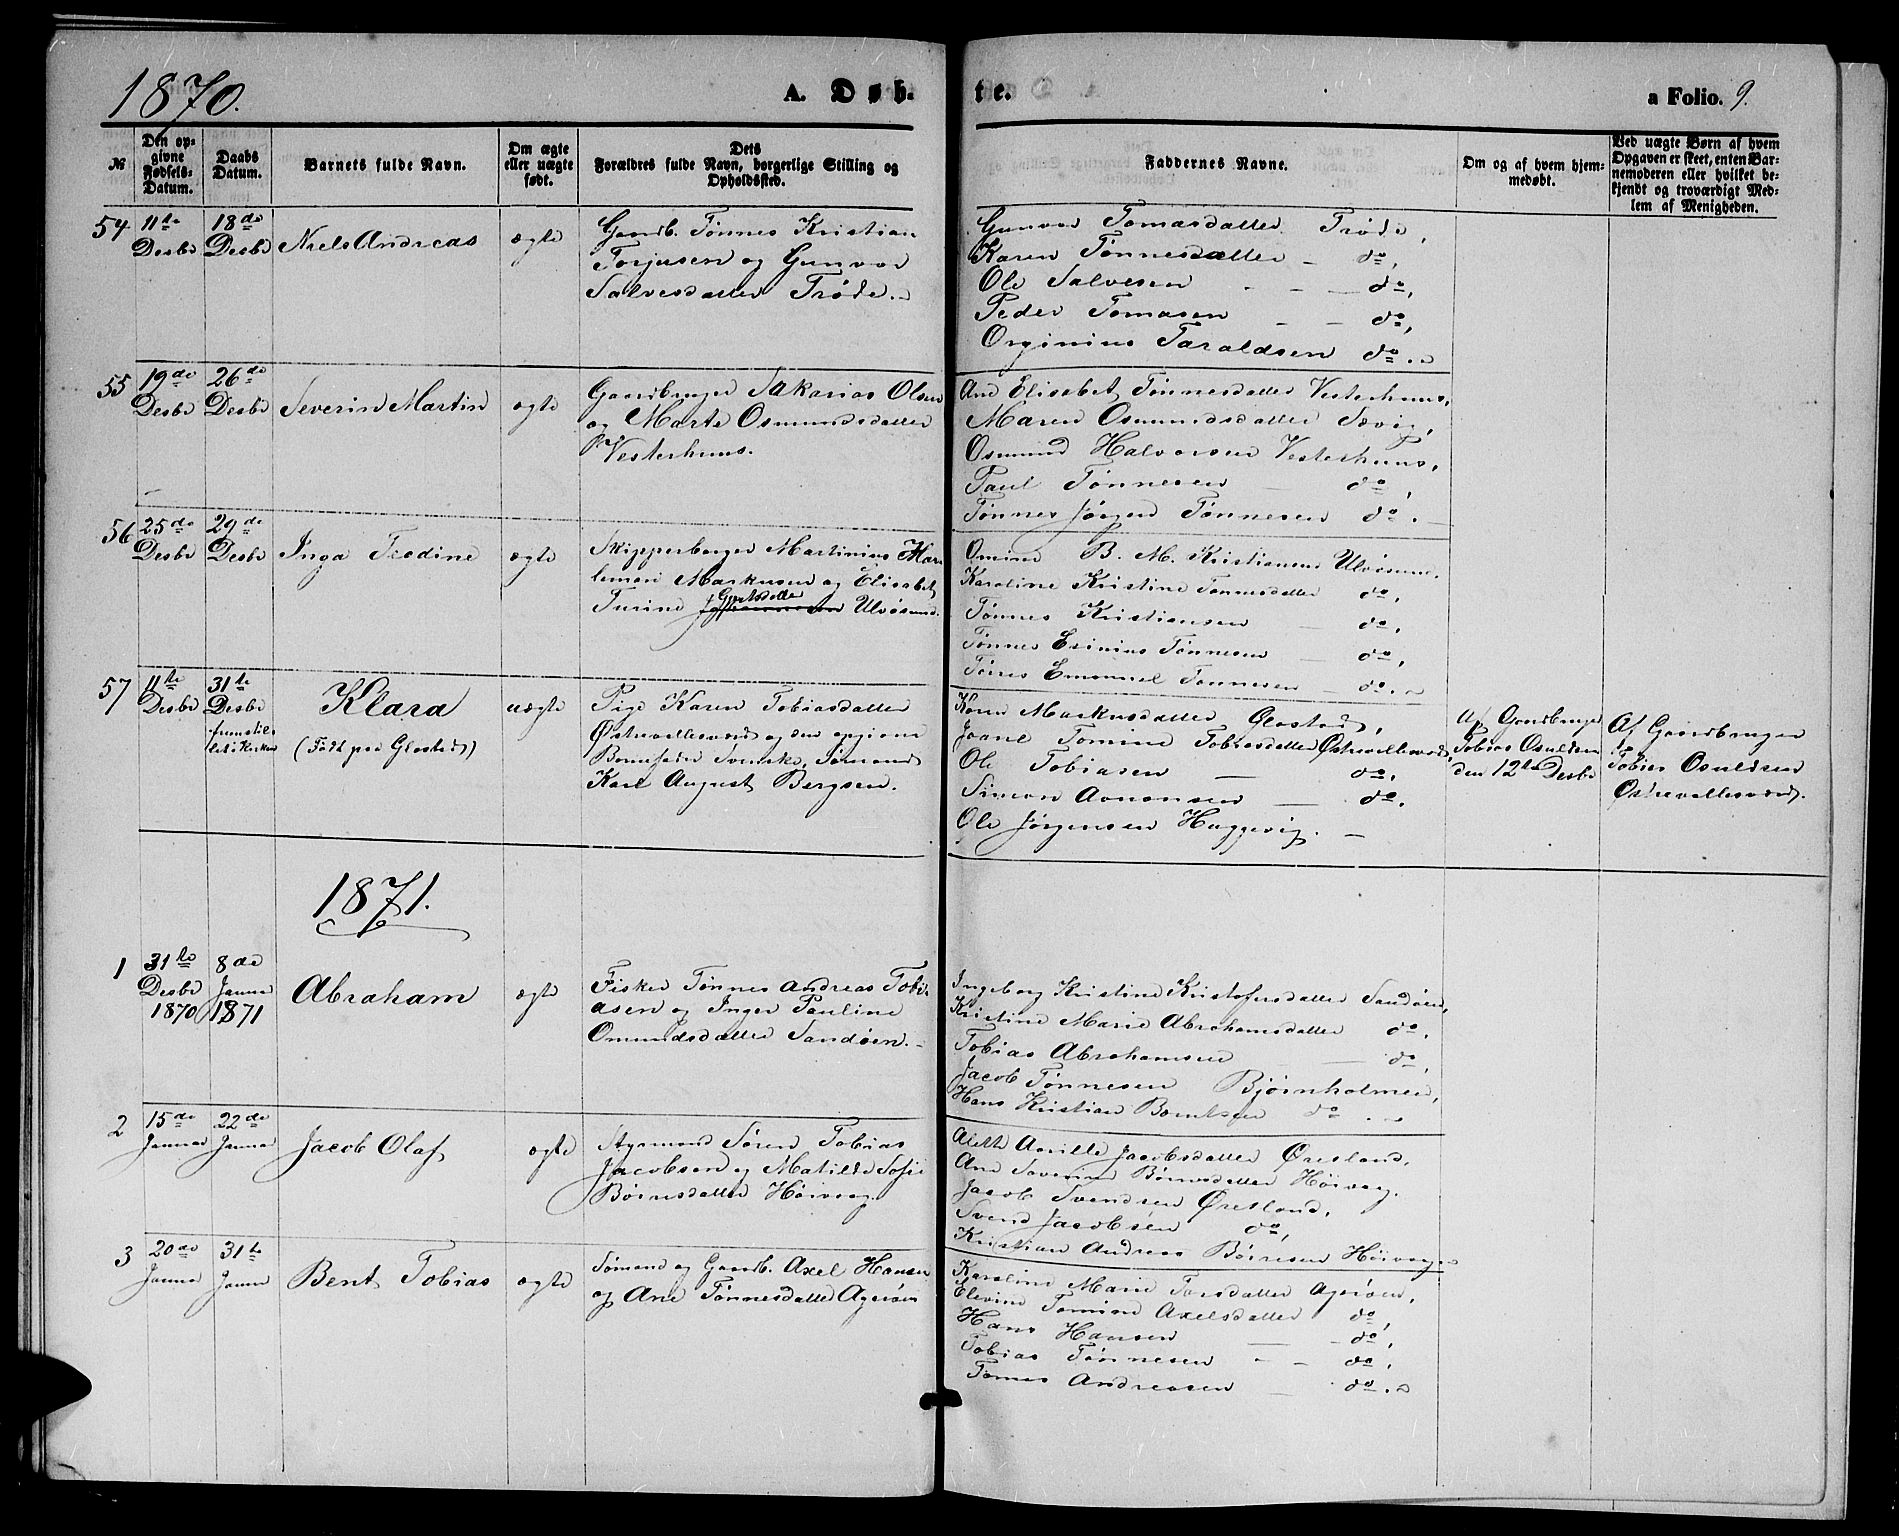 1870.
A. Døb-
te.
a Folio. 9.
№
Den op-
givne
Fødsels-
Datum.
Daabs
Datum.
Barnets fulde Navn.
Om ægte
eller uægte
født.
Dets
Forældres fulde Navn, borgerlige Stilling og
Opholdssted.
Faddernes Navne.
Om og af hvem hjem-
medøbt.
Ved uægte Børn af hvem
Opgaven er skeet, enten Bar-
nemoderen eller hvilket be-
kjendt og troværdigt Med-
lem af Menigheden.
54
11te
Desbr
18de
Desbr
Niels Andreas
ægte
Gaardb. Tønnes Kristian
Torjusen og Gunvor
Salvesdatter Trøde.
Gunvor Tomasdatter Trøde,
Karen Tønnesdatter - do,
Ole Salvesen - - do,
Peder Tomasen - - do,
Orginius Taraldsen do.
55
19de
Desbr
26de
Desbr
Severin Martin
ægte
Gaardbruger Sakarias Olsen
og Marte Osmundsdatter
Vesterhuus.
Ane Elisabet Tønnesdatter Vesterhuus,
Maren Osmundsdatter Sævig,
Osmund Halvorsen Vesterhuus,
Paul Tønnesen - do,
Tønnes Jørgen Tønnesen do.
56
25de
Desbr
29de
Desbr
Inga Trodine
ægte
Skipperborger Martinius Han
Markusen og Elisabet
Turine Gjertsdatter Ulvøsund.
B. M. Kristiansens Ulvøsund.
Karoline Kristine Tønnesdatter do,
Tønnes Kristiansen - do,
Tønnes Esinius Tønnesen - do,
Tørres Emanuel Tønnesen - do.
57
11te
Desbr
31te
Desbr
fremstil-
let i Kirken
Klara
(Født paa Glostad)
uægte
Pige Karen Tobiasdatter
Østrevallesværd og den opgivne
Barnefader Svenske, Sømand
Karl August Bergsen.
Karen Markusdatter Glostad,
Joane Tomine Tobiasdatter Østrevallesværd,
Ole Tobiasen - do,
Simon Aanonsen - do.
Ole Jørgensen Haggevig. -
Af Gaardbruger
Tobias Osuldsen
den 12te Desbr
Af Gaardbruger
Tobias Osuldsen
Østrevallesværd.
1871.
1
31te
Desbr
1870
8de
Januar
1871
Abraham
ægte
Fisker Tønnes Andreas Tobi-
asen og Inger Pauline
Omundsdatter Sandøen.
Ingeborg Kristine Kristofersdatter Sandøen,
Kristine Marie Abrahamsdatter do.
Tobias Abrahamsen - do,
Jacob Tønnesen Bjørnholmen,
Hans Kristian Berntsen do.
2
15de
Januar
22de
Januar
Jacob Olaf
ægte
Styrmand Søren Tobias
Jacobsen og Matilde Sofie
Børresdatter Høivaag
Alette Jacobsdatter Øresland,
Ane Severine Børresdatter Høivaag.
Jacob Svendsen Øresland,
Svend Jacobsen do,
Kristian Andreas Børresen Høivaag
3
20de
Januar
31te
Januar
Bent Tobias
ægte
Sømand og Gaardb. Axel Hansen
og Ane Tønnesdatter Agerøen
Karoline Marie Larsdatter Agerøen,
Elevine Tomine Axelsdatter do,
Hans Hansen - do,
Tobias Tønnesen - - do,
Tomes Andreasen - do.